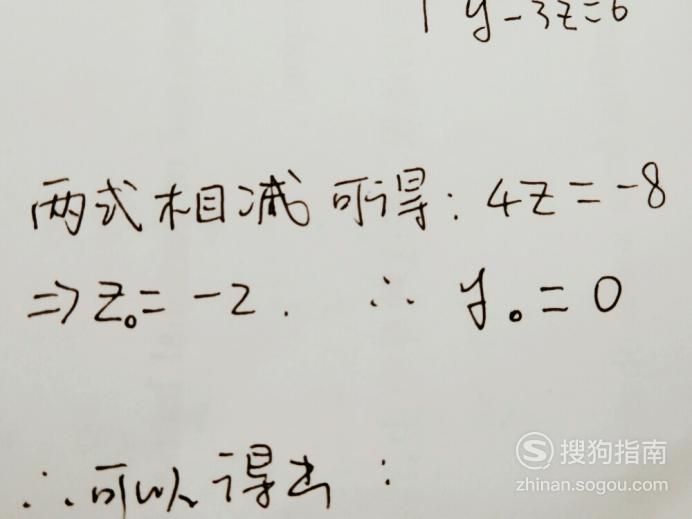 y-3z=6
两式相减可得：4z=-8
=>z₀=-2. ∴ y₀=0
∴可以得出：
搜狗指南
zhinan.sogou.com